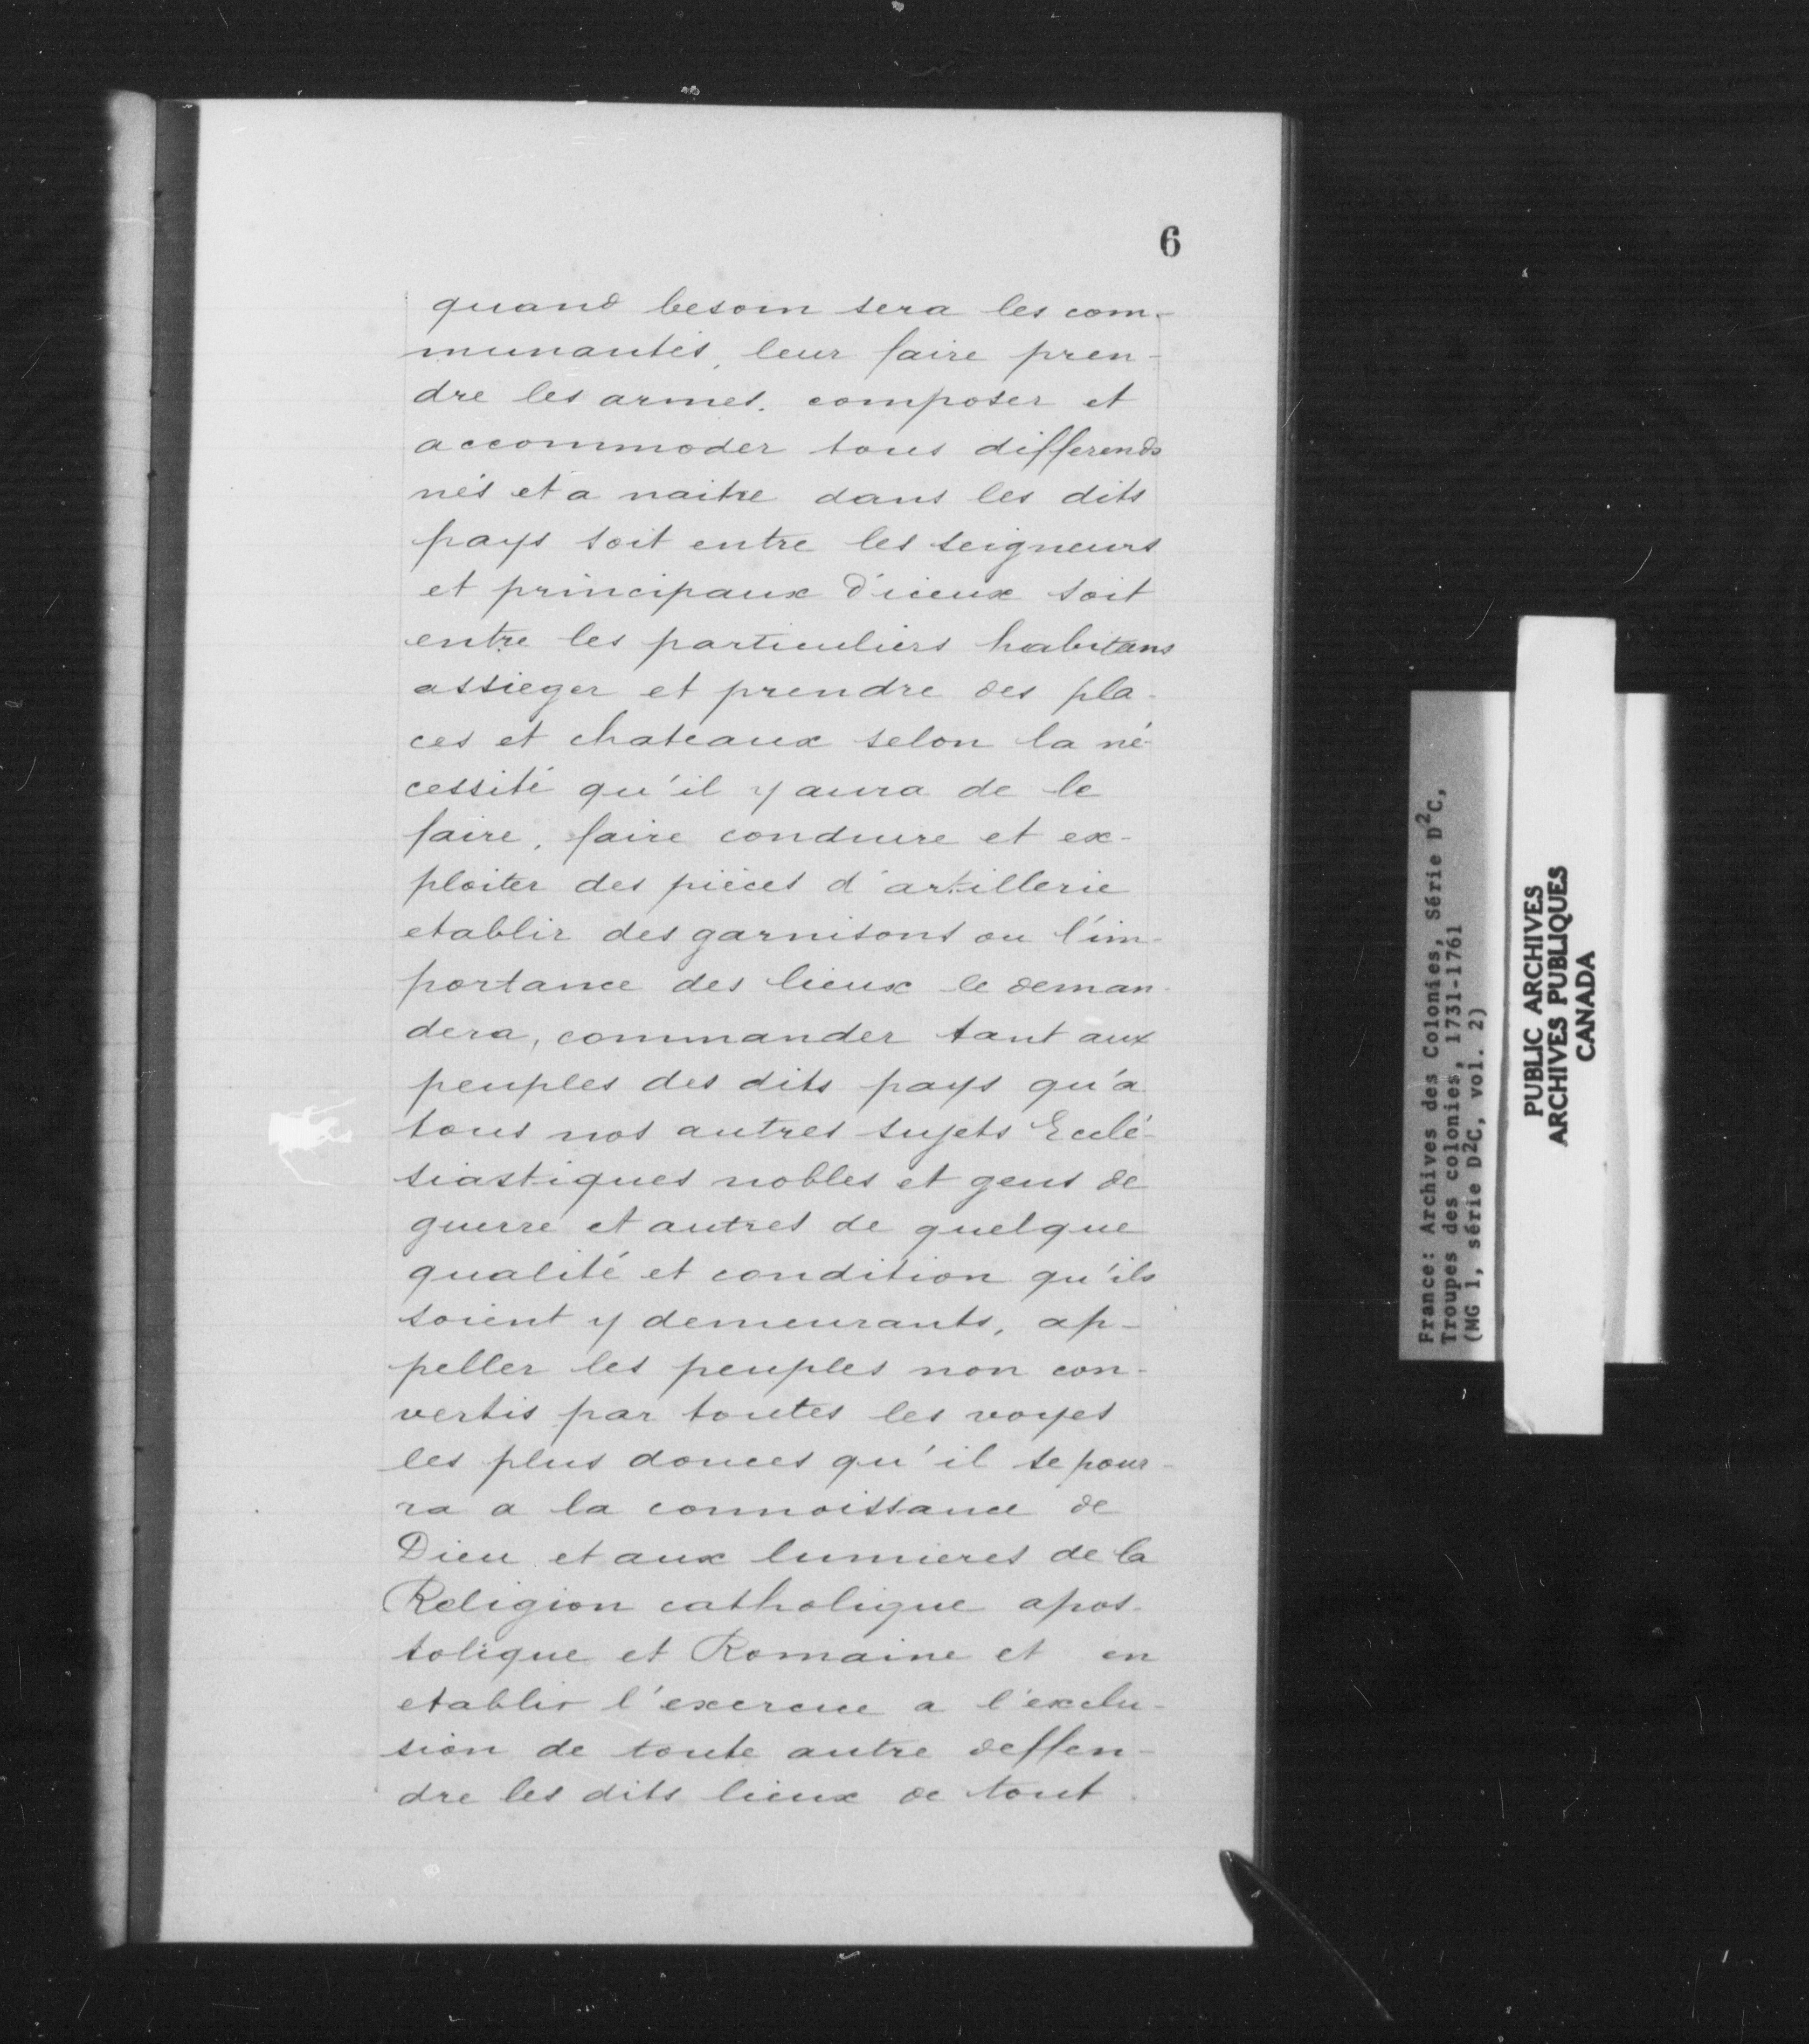 6
quand besoin sera les com-
munautés, leur faire pren-
dre les armes. composer et
accommoder tous differends
nés et a naitre dans les dits
pays soit entre les seigneurs
et principaux d'iceux soit
entre les particuliers habitans
assieger et prendre des pla-
ces et chateaux selon la né-
cessité qu'il y aura de le
faire, faire conduire et ex-
ploiter des pièces d'artillerie
etablir des garnisons ou l'im-
portance des lieux le deman-
dera, commander tant aux
peuples des dits pays qu'a
tous nos autres sujets Eclé-
siastiques nobles et gens de
guerre et autres de quelque
qualité et condition qu'ils
soient y demeurants, ap-
peller les peuples non con-
vertis par toutes les voyes
les plus douces qu'il se pour-
ra a la connoissance de
Dieu et aux lumieres de la
Religion catholique apos-
tolique et Romaine et en
etablir l'exercice a l'exclu-
sion de toute autre deffen-
dre les dits lieux de tout
France: Archives des Colonies, Série D²C,
Troupes des colonies, 1731-1761
(MG 1, série D²C, vol. 2)
PUBLIC ARCHIVES
ARCHIVES PUBLIQUES
CANADA